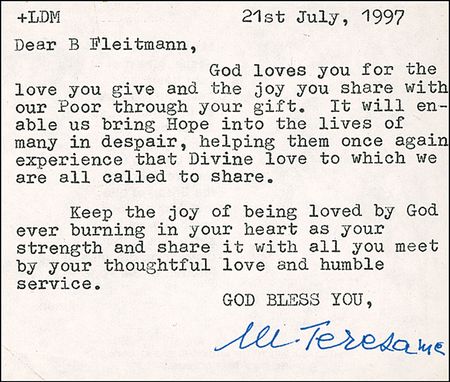 +LDM 21st July, 1997
Dear B Fleitmann,
God loves you for the
love you give and the joy you share with
our Poor through your gift. It will en-
able us bring Hope into the lives of
many in despair, helping them once again
experience that Divine love to which we
are all called to share.
Keep the joy of being loved by God
ever burning in your heart as your
strength and share it with all you meet
by your thoughtful love and humble
service.
GOD BLESS YOU,
M. Teresa mc